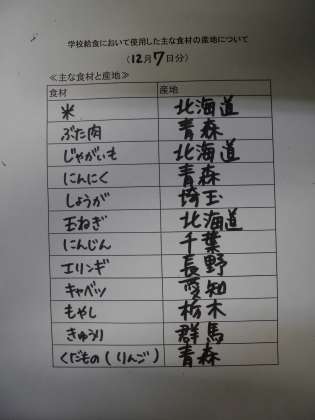 学校給食において使用した主な食材の産地について
(12月7日分)
≪主な食材と産地≫
食材 産地
米 北海道
ぶた肉 青森
じゃがいも 北海道
にんにく 青森
しょうが 埼玉
玉ねぎ 北海道
にんじん 千葉
エリンギ 長野
キャベツ 愛知
もやし 栃木
きゅうり 群馬
くだもの(りんご) 青森